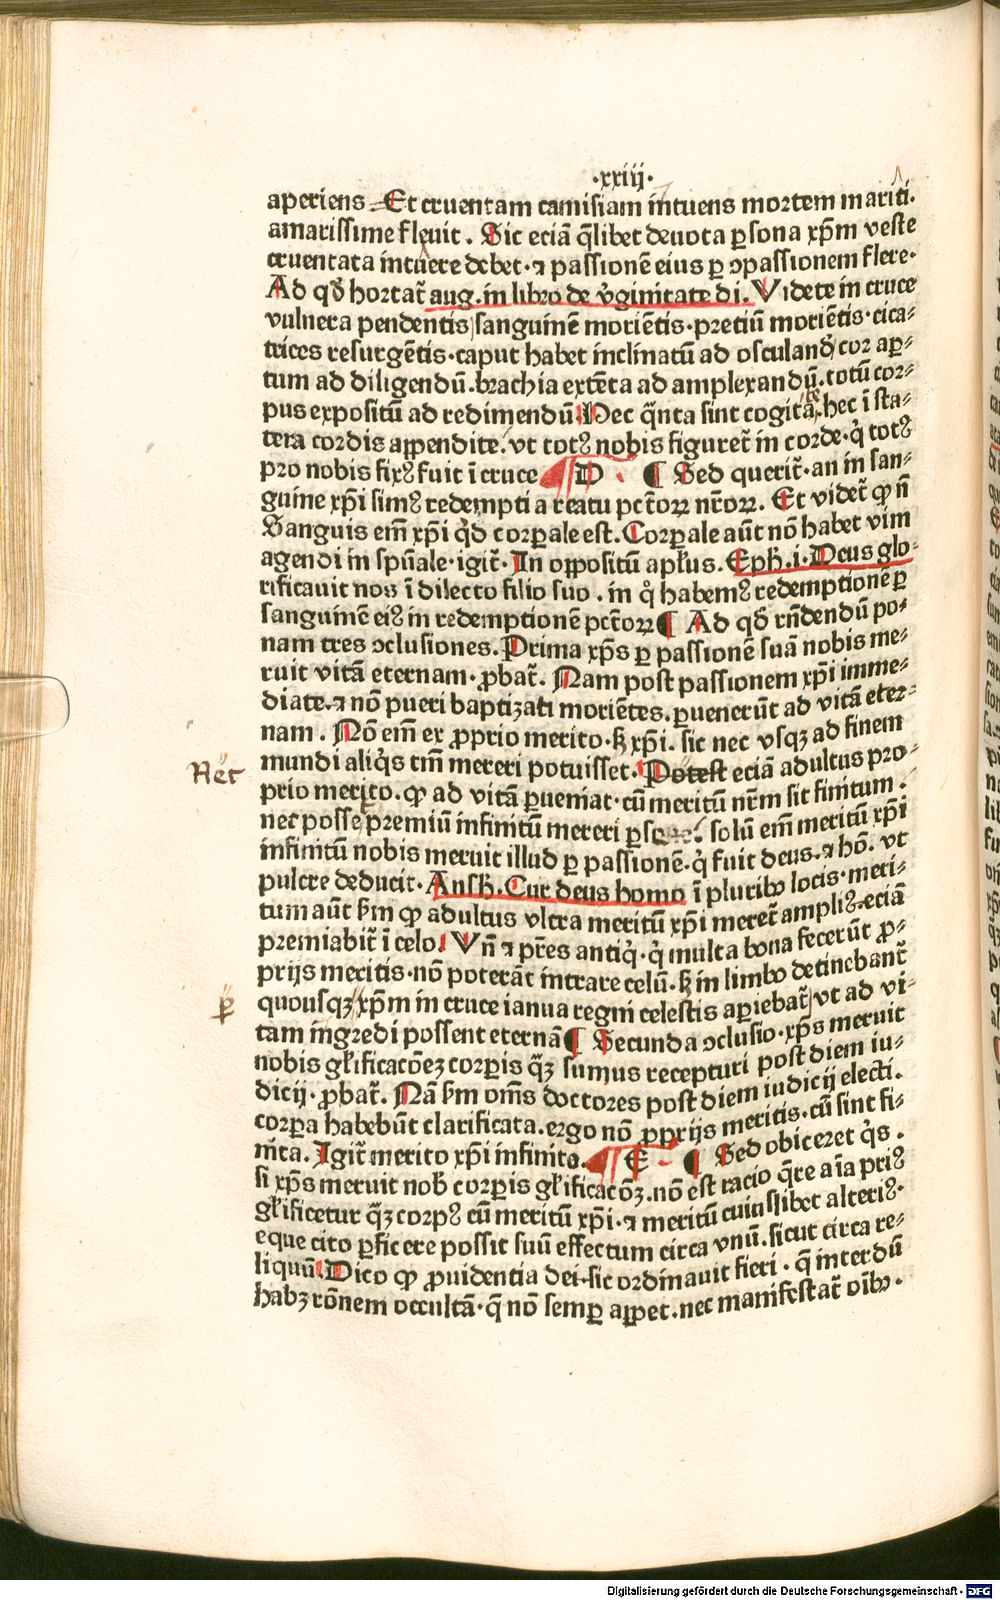 ·xxiij·
aperiens Et cruentam camisiam intuens mortem mariti.
amarissime fleuit. Sic eciā q̄libet deuota ꝑsona xp̄m veste
cruentata intuere debet·⁊ passionē eius ꝑ ↄpassionem flere·
Ad qd̓ hortat̄ aug. in libro de v̓ginitate di. Videte in cruce
vulnera pendentis sanguinē moriētis·pretiū moriētis·cica⸗
trices resurgētis·caput habet inclinatū ad osculand̓ cor ap⸗
tum ad diligendū.brachia extēta ad amplexandū.totū cor⸗
pus expositū ad redimendū Hec q̄nta sint cogitate hec ī sta⸗
tera cordis appendite.vt totꝰ nobis figuret̄ in corde·q̇ totꝰ
pro nobis fixꝰ fuit ī cruce ¶ D · ¶ Sed querit̄·an in san⸗
guine xp̄i simꝰ redempti a reatu pctōꝝ nr̄oꝝ. Et videt̄ ꝙ ñ
Sanguis em̄ xp̄i qd̓ corꝑale est. Corꝑale aūt nō habet vim
agendi in spūale·igit̄· In oppositū apl̓us. Eph̓.i.Deus glo⸗
rificauit nos ī dilecto filio suo.in q̓ habemꝰ redemptionē ꝑ
sanguinē eiꝰ in redemptionē pctōꝝ ¶ Ad qd̓ rn̄dendū po⸗
nam tres ↄclusiones. Prima xp̄s ꝑ passionē suā nobis me⸗
ruit vitā eternam·ꝓbat̄. Nam post passionem xp̄i imme⸗
diate·⁊ nō pueri baptizati moriētes.ꝑuenerūt ad vitā eter⸗
nam. Nō em̄ ex ꝓprio merito·ẞ xp̄i. sic nec vsqꝫ ad finem
mundi aliq̓s tm̄ mereri potuisset. Potest eciā adultus pro⸗
Nec̄
prio merito.ꝙ ad vitā ꝑueniat·cū meritū nr̄m sit finitum.
nec posse premiū infinitū mereri ꝑ solū em̄ meritū xp̄i
infinitū nobis meruit illud ꝑ passionē·q̓ fuit deus.⁊ hō. vt
pulcre deducit. Ansh̓. Cur deus homo ī pluribꝰ locis·meri⸗
tum aūt ẞm ꝙ adultus vltra meritū xp̄i meret̄ ampliꝰ.eciā
premiabit̄ ī celo. Vn̄ ⁊ pr̄es antiq̓·q̓ multa bona fecerūt ꝓ⸗
prijs meritis·nō poterāt intrare celū·ẞ in limbo detinebant̄
quousqꝫ xp̄m in cruce ianua regni celestis aꝑiebat̄ vt ad vi⸗
tam ingredi possent eternā ¶ Secunda ↄclusio·xp̄s meruit
nobis gl̓ificacōeꝫ corꝑis q̄ꝫ sumus recepturi post diem iu⸗
dicij·ꝓbat̄. Nā ẞm om̄s doctores post diem iudicij electi.
corꝑa habebūt clarificata.ergo nō ꝓprijs meritis·cū sint fi⸗
nita. Igit̄ merito xp̄i infinito. ¶ E · ¶ Sed obiceret q̓s.
si xp̄s meruit nob̓ corꝑis gl̓ificacōꝫ.nō est racio q̄re aīa priꝰ
gl̓ificetur q̄ꝫ corpꝰ cū meritū xp̄i·⁊ meritū cuiuslibet alteriꝰ·
eque cito ꝑficere possit suū effectum circa vnū.sicut circa re⸗
liquū. Dico ꝙ ꝓuidentia dei·sic ordinauit fieri·q̄ interdū
habꝫ rōnem occultā·q̄ nō semꝑ appet.nec manifestat̄ oībꝰ.
Digitalisierung gefördert durch die Deutsche Forschungsgemeinschaft - DFG